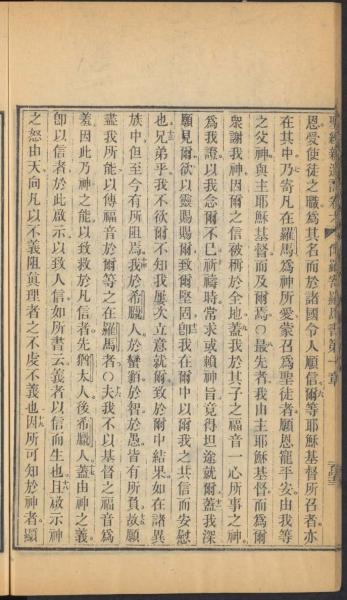 恩愛使徒之職爲其名而於諸國令人順信爾等耶穌基督所召者亦
在其中乃寄凡在羅馬爲神所愛蒙召爲聖徒者願恩寵平安由我等
之父神與主耶穌基督而及爾焉○最先者我由主耶穌基督而爲爾
衆謝我神因爾之信被稱於全地蓋我於其子之福音一心所事之神
爲我證以我念爾不已祈禱時常求或賴神旨竟得坦途就爾蓋我深
願見爾欲以靈賜賜爾致爾堅固卽我在爾中以爾我之共信而安慰
也兄弟乎我不欲爾不知我屢次立意就爾致於爾中結果如在諸異
族中但至今有所阻焉我於希臘人於蠻貊於智於愚皆有所負故願
盡我所能以傳福音於爾等之在羅馬者○夫我不以基督之福音爲
羞因此乃神之能以致救於凡信者先猶太人後希臘人蓋由神之義
卽以信者於此啟示以致人信如所書云義者以信而生也且啟示神
之怒由天向凡以不義阻眞理者之不虔不義也因所可知於神者顯